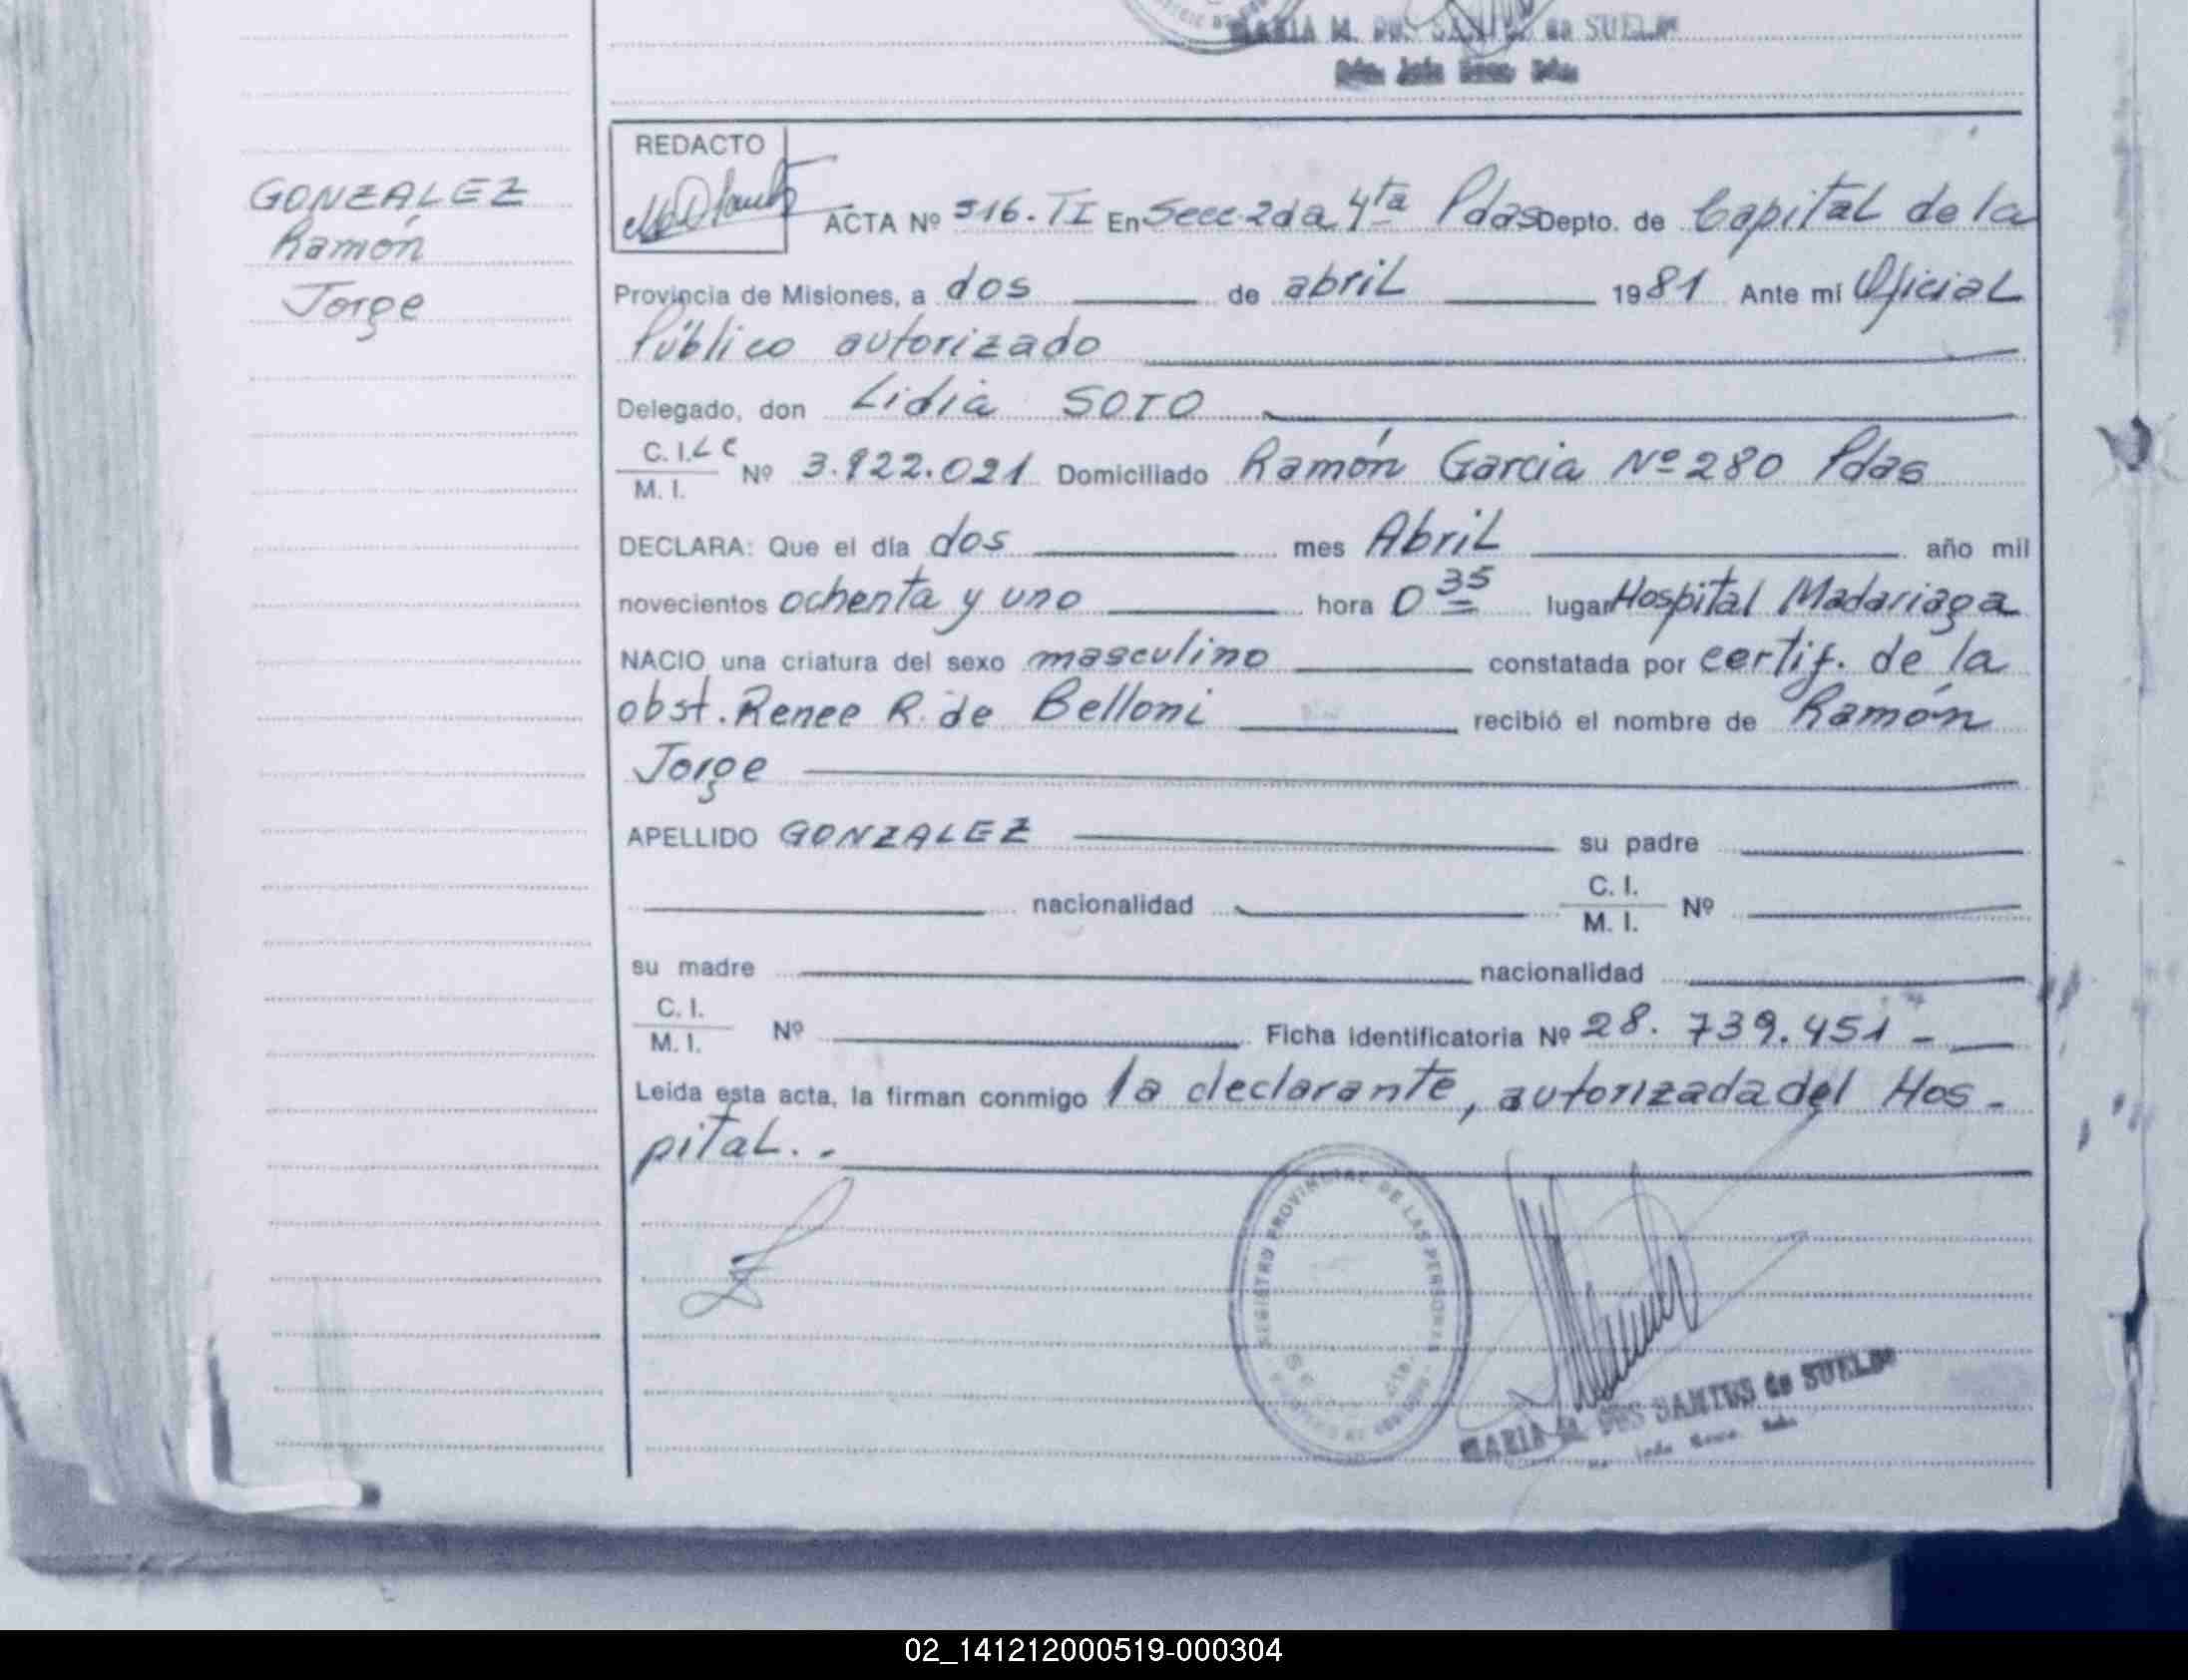 MARIA M. DOS SANTOS de SUELDO
GONZALEZ
Ramón
Jorge
REDACTO
ACTA Nº 516. TI En Secc. 2da 4ta Pdas Depto. de Capital de la
Provincia de Misiones, a dos de abril 1981 Ante mi Oficial
Público autorizado
Delegado, don Lidia SOTO
C. I. L C
M. I.
Nº 3.922.021 Domiciliado Ramón Garcia Nº 280 Pdas
DECLARA: Que el día dos mes Abril año mil
novecientos ochenta y uno hora 0 35 lugar Hospital Madariaga
NACIO una criatura del sexo masculino constatada por certif. de la
obst. Renee R. de Belloni recibió el nombre de Ramón
Jorge
APELLIDO GONZALEZ su padre
nacionalidad C. I. M. I. Nº
su madre nacionalidad
C. I.
M. I.
Nº Ficha identificatoria Nº 28. 739.451 -
Leida esta acta, la firman conmigo la declarante, autorizada del Hos-
pital. -
REGISTRO PROVINCIAL DE LAS PERSONAS
MARIA M. DOS SANTOS de SUELDO
02_141212000519-000304